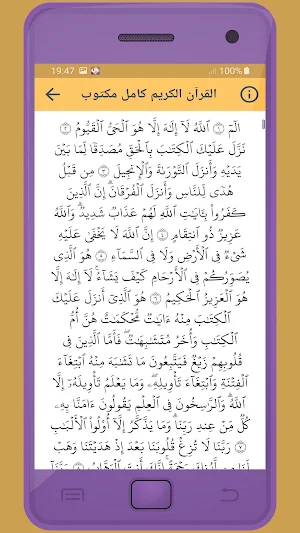 19:47 100%
القرآن الكريم كامل مكتوب
الٓمٓ ۝١ ٱللَّهُ لَآ إِلَٰهَ إِلَّا هُوَ ٱلْحَىُّ ٱلْقَيُّومُ ۝٢
نَزَّلَ عَلَيْكَ ٱلْكِتَٰبَ بِٱلْحَقِّ مُصَدِّقًا لِّمَا بَيْنَ
يَدَيْهِ وَأَنزَلَ ٱلتَّوْرَىٰةَ وَٱلْإِنجِيلَ ۝٣ مِن قَبْلُ
هُدًى لِّلنَّاسِ وَأَنزَلَ ٱلْفُرْقَانَ ۗ إِنَّ ٱلَّذِينَ
كَفَرُوا۟ بِـَٔايَٰتِ ٱللَّهِ لَهُمْ عَذَابٌ شَدِيدٌ ۗ وَٱللَّهُ
عَزِيزٌ ذُو ٱنتِقَامٍ ۝٤ إِنَّ ٱللَّهَ لَا يَخْفَىٰ عَلَيْهِ
شَىْءٌ فِى ٱلْأَرْضِ وَلَا فِى ٱلسَّمَآءِ ۝٥ هُوَ ٱلَّذِى
يُصَوِّرُكُمْ فِى ٱلْأَرْحَامِ كَيْفَ يَشَآءُ ۚ لَآ إِلَٰهَ إِلَّا
هُوَ ٱلْعَزِيزُ ٱلْحَكِيمُ ۝٦ هُوَ ٱلَّذِىٓ أَنزَلَ عَلَيْكَ
ٱلْكِتَٰبَ مِنْهُ ءَايَٰتٌ مُّحْكَمَٰتٌ هُنَّ أُمُّ
ٱلْكِتَٰبِ وَأُخَرُ مُتَشَٰبِهَٰتٌ ۖ فَأَمَّا ٱلَّذِينَ فِى
قُلُوبِهِمْ زَيْغٌ فَيَتَّبِعُونَ مَا تَشَٰبَهَ مِنْهُ ٱبْتِغَآءَ
ٱلْفِتْنَةِ وَٱبْتِغَآءَ تَأْوِيلِهِۦ ۗ وَمَا يَعْلَمُ تَأْوِيلَهُۥٓ إِلَّا
ٱللَّهُ ۗ وَٱلرَّٰسِخُونَ فِى ٱلْعِلْمِ يَقُولُونَ ءَامَنَّا بِهِۦ
كُلٌّ مِّنْ عِندِ رَبِّنَا ۗ وَمَا يَذَّكَّرُ إِلَّآ أُو۟لُوا۟ ٱلْأَلْبَٰبِ
۝٧ رَبَّنَا لَا تُزِغْ قُلُوبَنَا بَعْدَ إِذْ هَدَيْتَنَا وَهَبْ
لَنَا مِن لَّدُنكَ رَحْمَةً ۚ إِنَّكَ أَنتَ ٱلْوَهَّابُ ۝٨ رَبَّنَآ